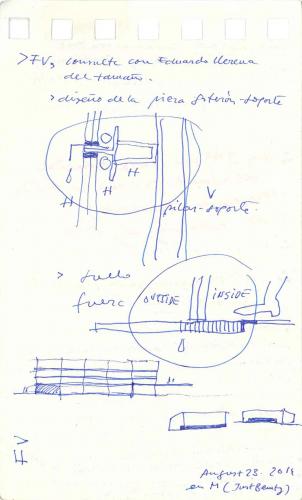 >FV, consulta con Eduardo Llerena
del tamaño.
>diseño de la pieza exterior-soporte
H
H
H
pilar-soporte.
> suelo
fuera
OUTSIDE
INSIDE
FV
August 23. 2014
en M (JustBeauty)